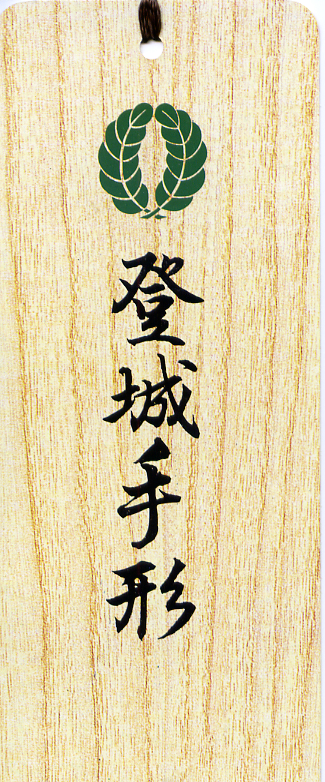 登城手形